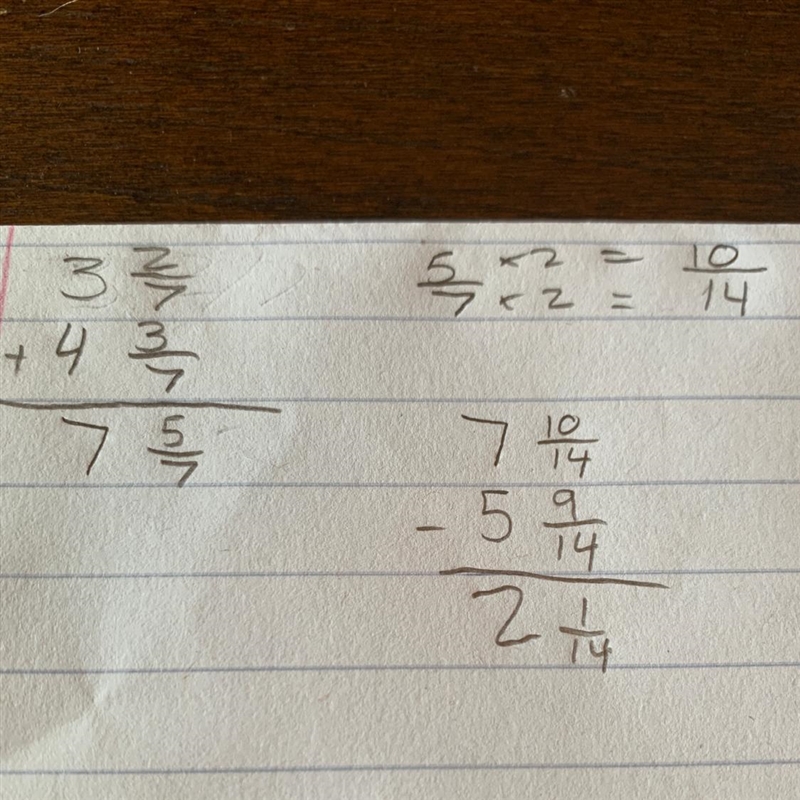 3 2/7
+ 4 3/7
7 5/7
5/7 × 2 = 10/14
× 2 =
7 10/14
- 5 9/14
2 1/14